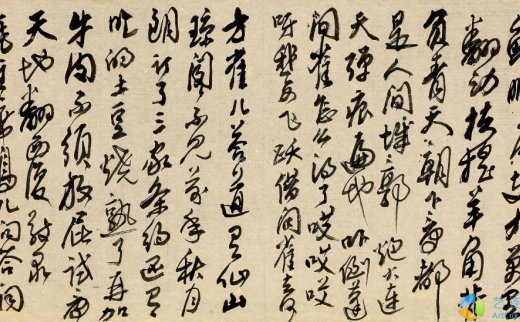 翻动扶摇羊角背
负青天朝下看都
是人间城郭炮火连
天弹痕遍地吓倒蓬
间雀怎么得了哎哎哎
呀我要飞跃借问
方雀儿答道有仙山
琼阁不见前年秋月
朗订了三家条约还有
吃的土豆烧熟了再加
牛肉不须放屁试看
天地翻覆
鸟儿问答词